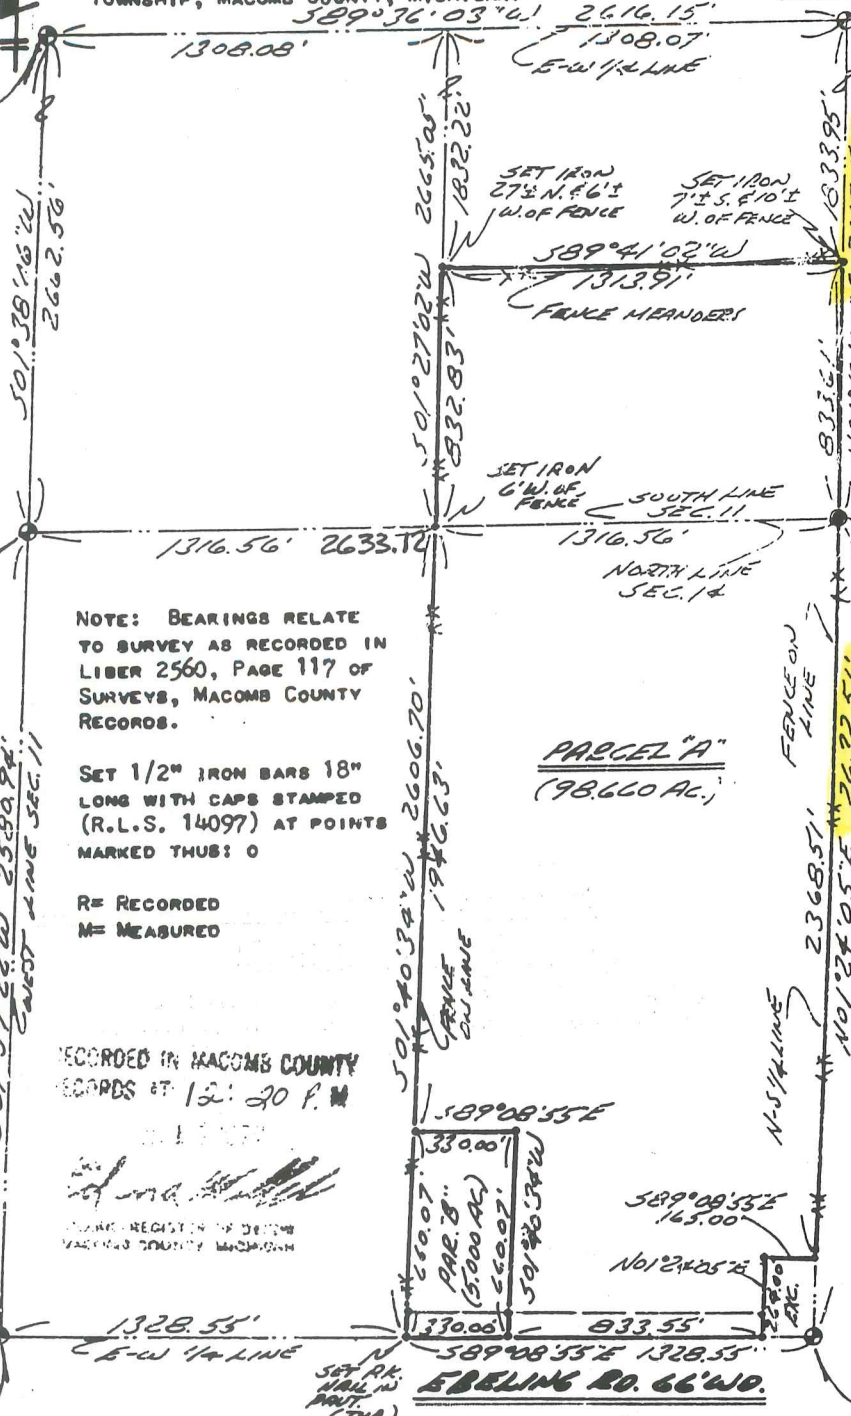 TOWNSHIP, MACOMB COUNTY, MICHIGAN
S89°36'03"W 2616.15'
1308.08'
1308.07'
E-W 1/4 LINE
R
2665.05'
1832.22'
1833.95'
SET IRON
27'± N. & 6'±
W. OF FENCE
SET IRON
7'± S. & 10'±
W. OF FENCE
S89°41'02"W
1313.91'
FENCE MEANDERS
S01°38'16"W
2662.56'
S01°27'02"W
832.83'
833.61'
SET IRON
6' W. OF
FENCE
SOUTH LINE
SEC. 11
1316.56' 2633.12
1316.56'
NORTH LINE
SEC. 14
NOTE: BEARINGS RELATE
TO SURVEY AS RECORDED IN
LIBER 2560, PAGE 117 OF
SURVEYS, MACOMB COUNTY
RECORDS.
SET 1/2" IRON BARS 18"
LONG WITH CAPS STAMPED
(R.L.S. 14097) AT POINTS
MARKED THUS: O
R= RECORDED
M= MEASURED
WEST LINE SEC. 11
S01°40'34"W 2606.70'
1946.63'
FENCE
ON LINE
PARCEL "A"
(98.660 AC.)
FENCE ON
LINE
2368.51'
N01°24'05"E
N-S 1/4 LINE
ECORDED IN MACOMB COUNTY
ECORDS AT 12:20 P.M
REGISTER OF DEEDS
MACOMB COUNTY MICHIGAN
S89°08'55"E
330.00'
660.07'
PAR. "B"
(5.000 AC.)
660.07'
S01°40'34"W
S89°08'55"E
165.00'
N01°24'05"E
264.00
EXC.
1328.55'
E-W 1/4 LINE
330.00'
833.55'
S89°08'55"E 1328.55'
SET P.K.
NAIL IN
PAVT.
EBELING RD. 66' WD.